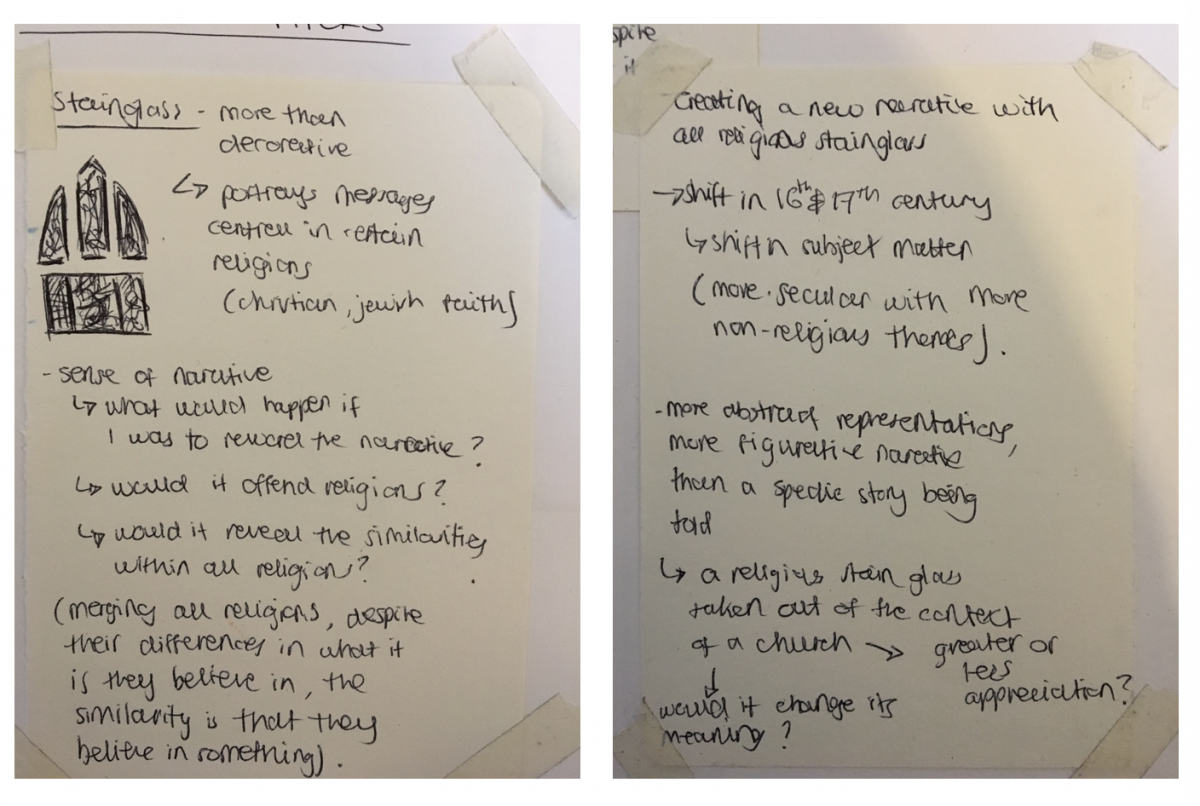 Stainglass - more than
decorative
↳ portrays messages
centred in certain
religions
(christian, jewish faith)
- sense of narative
↳ what would happen if
I was to reword the narrative?
↳ would it offend religions?
↳ would it reveal the similarities
within all religions?
(merging all religions, despite
their differences in what it
is they believe in, the
similarity is that they
believe in something).
spite
it
Creating a new narrative with
all religious stainglass
→ shift in 16th & 17th century
↳ shift in subject matter
(more secular with more
non-religious themes).
- more abstract representations,
more figurative narative
than a specific story being
told
↳ a religius stain glass
taken out of the context
of a church → greater or
less
appreciation?
↓
would it change its
meaning?